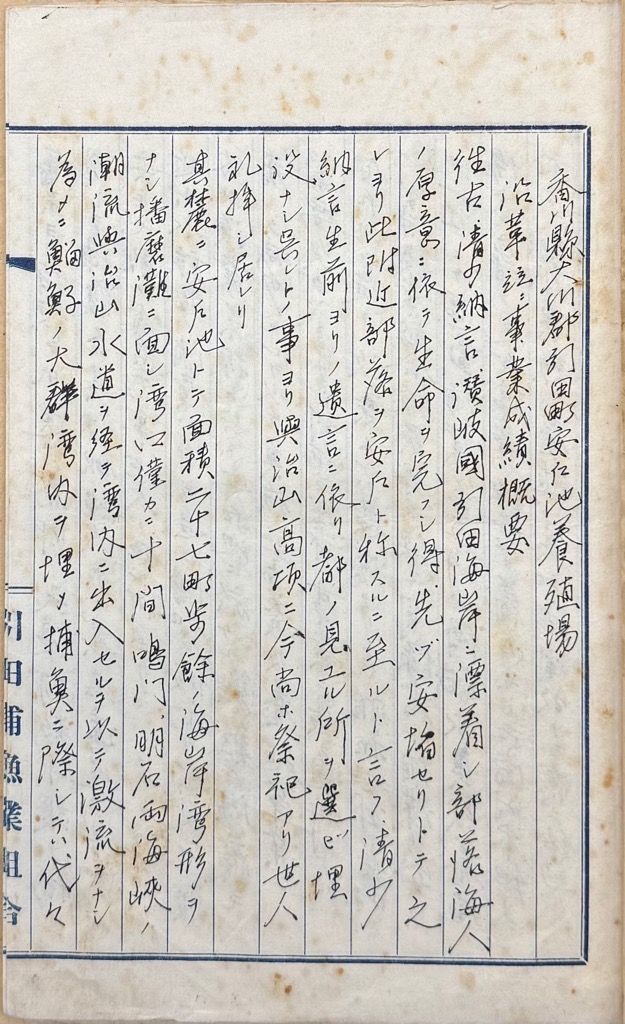 香川縣大川郡引田町安戸池養殖場
沿革並ニ事業成績概要
往古清少納言讃岐國引田海岸ニ漂着シ部落海人
ノ厚意ニ依テ生命ヲ完フシ得先ヅ安堵セリトテ之
レヨリ此附近部落ヲ安戸ト称スルニ至ルト言フ清少
納言生前ヨリノ遺言ニ依リ都ノ見エル所ヲ選ビ埋
設ナシ呉レトノ事ヨリ與治山高頂ニ今尚ホ祭祀アリ世人
礼拝シ居レリ
其麓ニ安戸池トテ面積二十七町歩餘ノ海岸湾形ヲ
ナシ播磨灘ニ面シ湾口僅カニ十間鳴門、明石両海峡ノ
潮流與治山水道ヲ経テ湾内ニ出入セルヲ以テ激流ヲナシ
為メニ鰡鰤ノ大群湾内ヲ埋メ捕魚ニ際シテハ代々
引田浦漁業組合